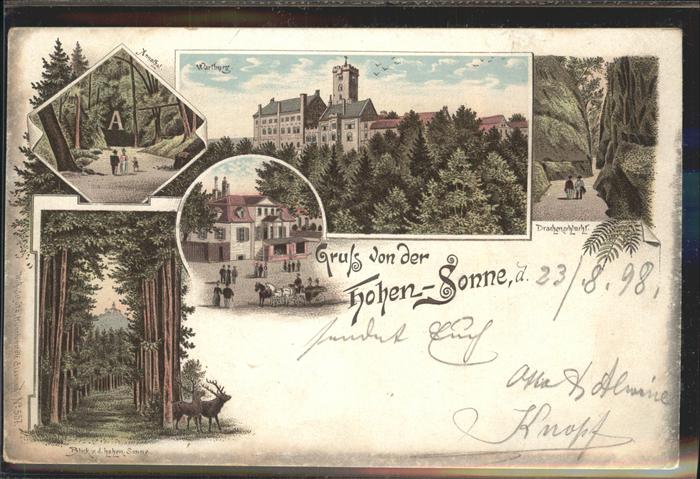 Annathal
A
Wartburg
Drachenschlucht.
Gruſs von der
Hohen-Sonne, d. 23/8. 98.
sendet Euch
Otto & Alwine
Knopf
Blick v. d. hohen Sonne